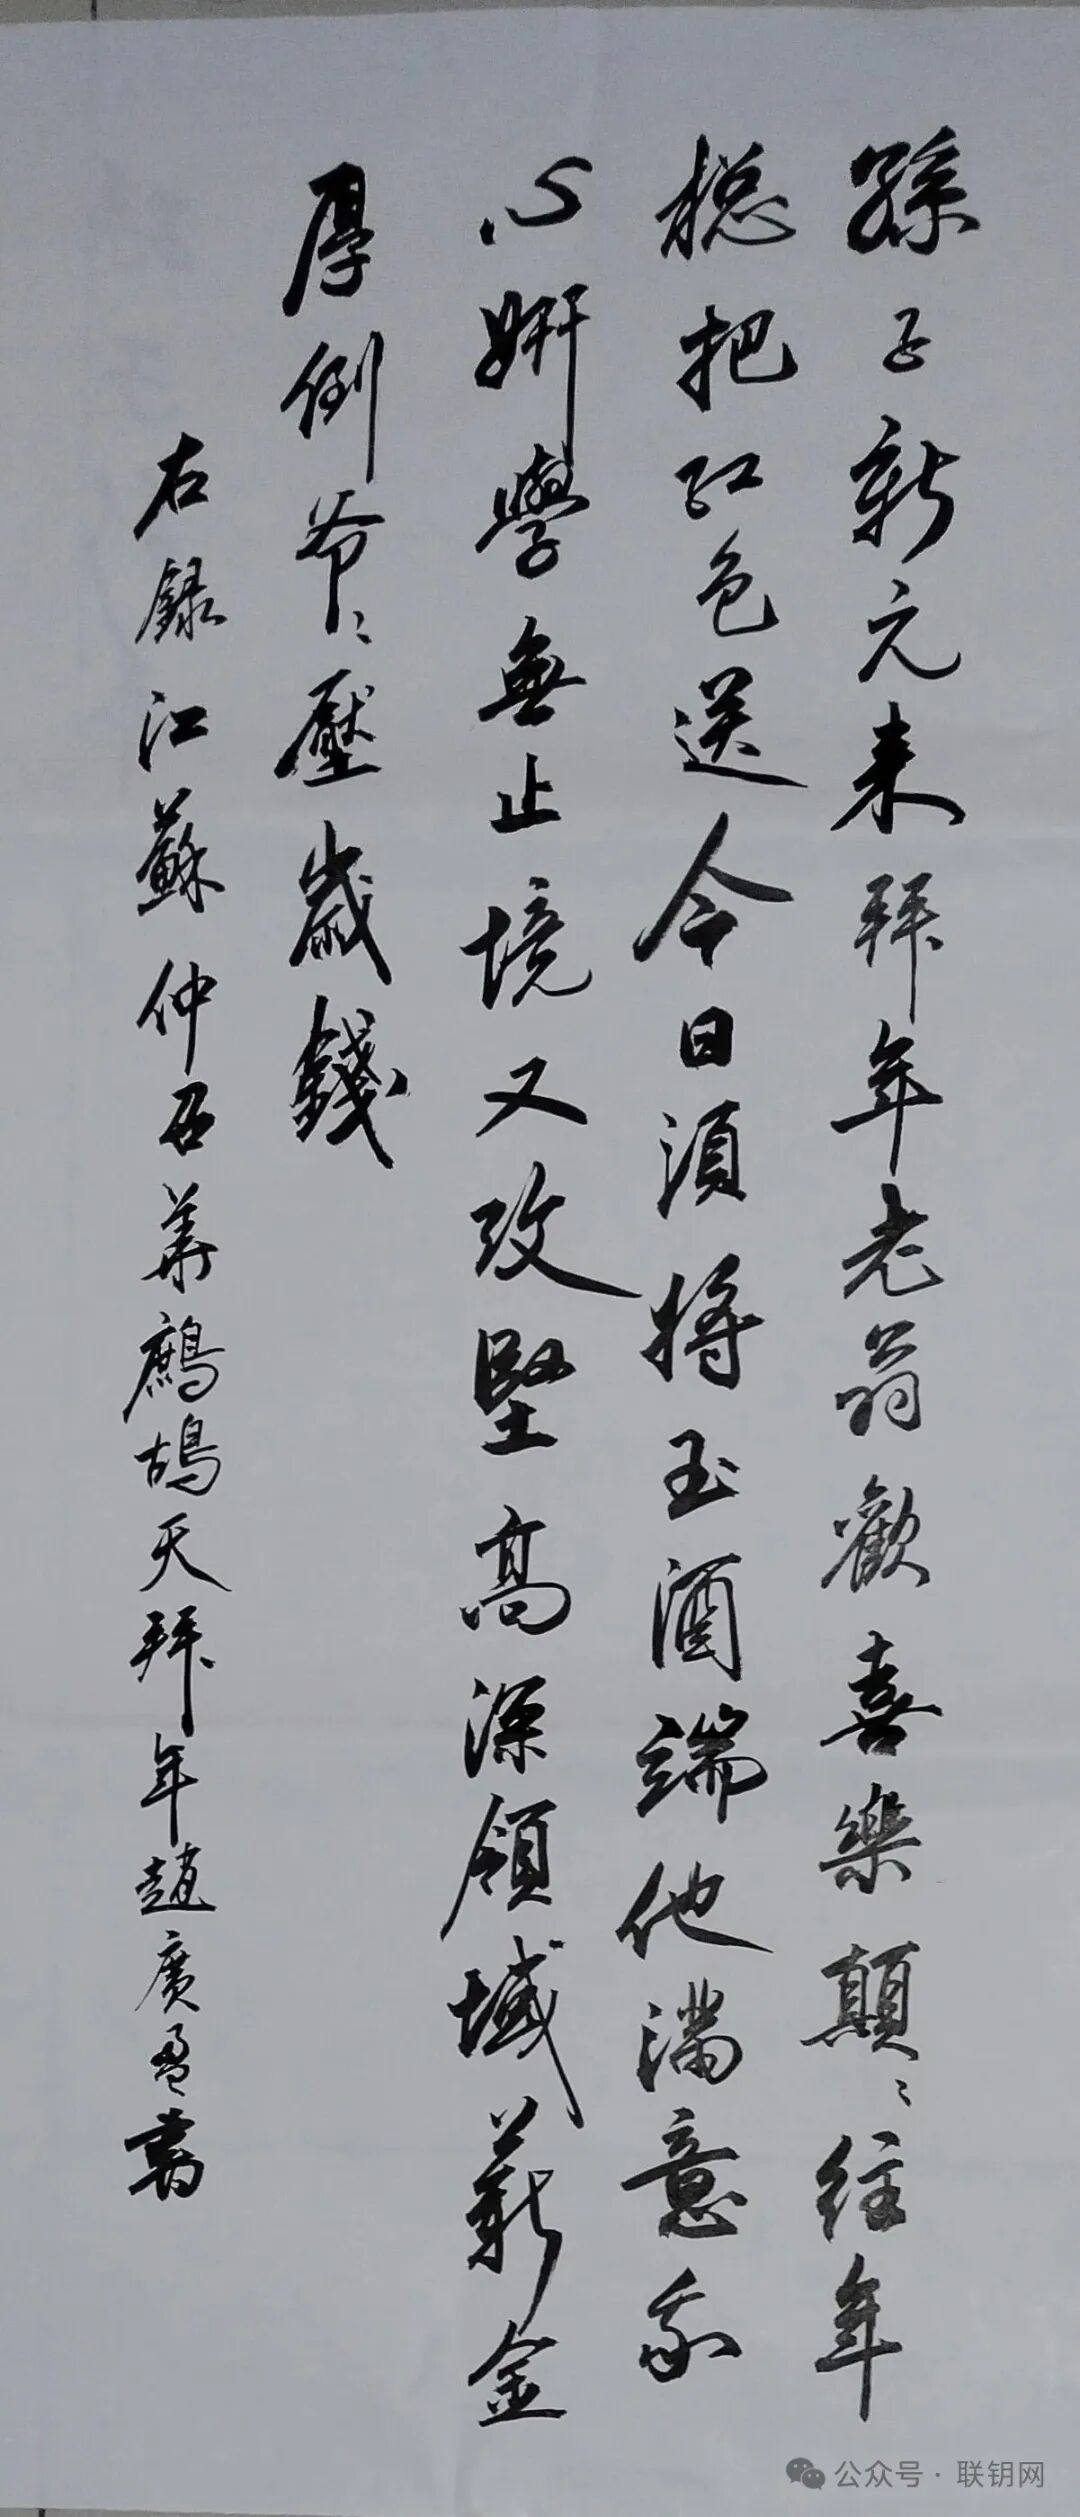 孫子新元来拜年老翁歡喜樂顛〻往年
總把红包送今日須將玉酒端他滿意我
心妍學無止境又攻堅高深領域薪金
厚倒爷〻壓歲錢
右錄江蘇仲召華鷓鴣天拜年趙廣盈書
公众号·联钥网